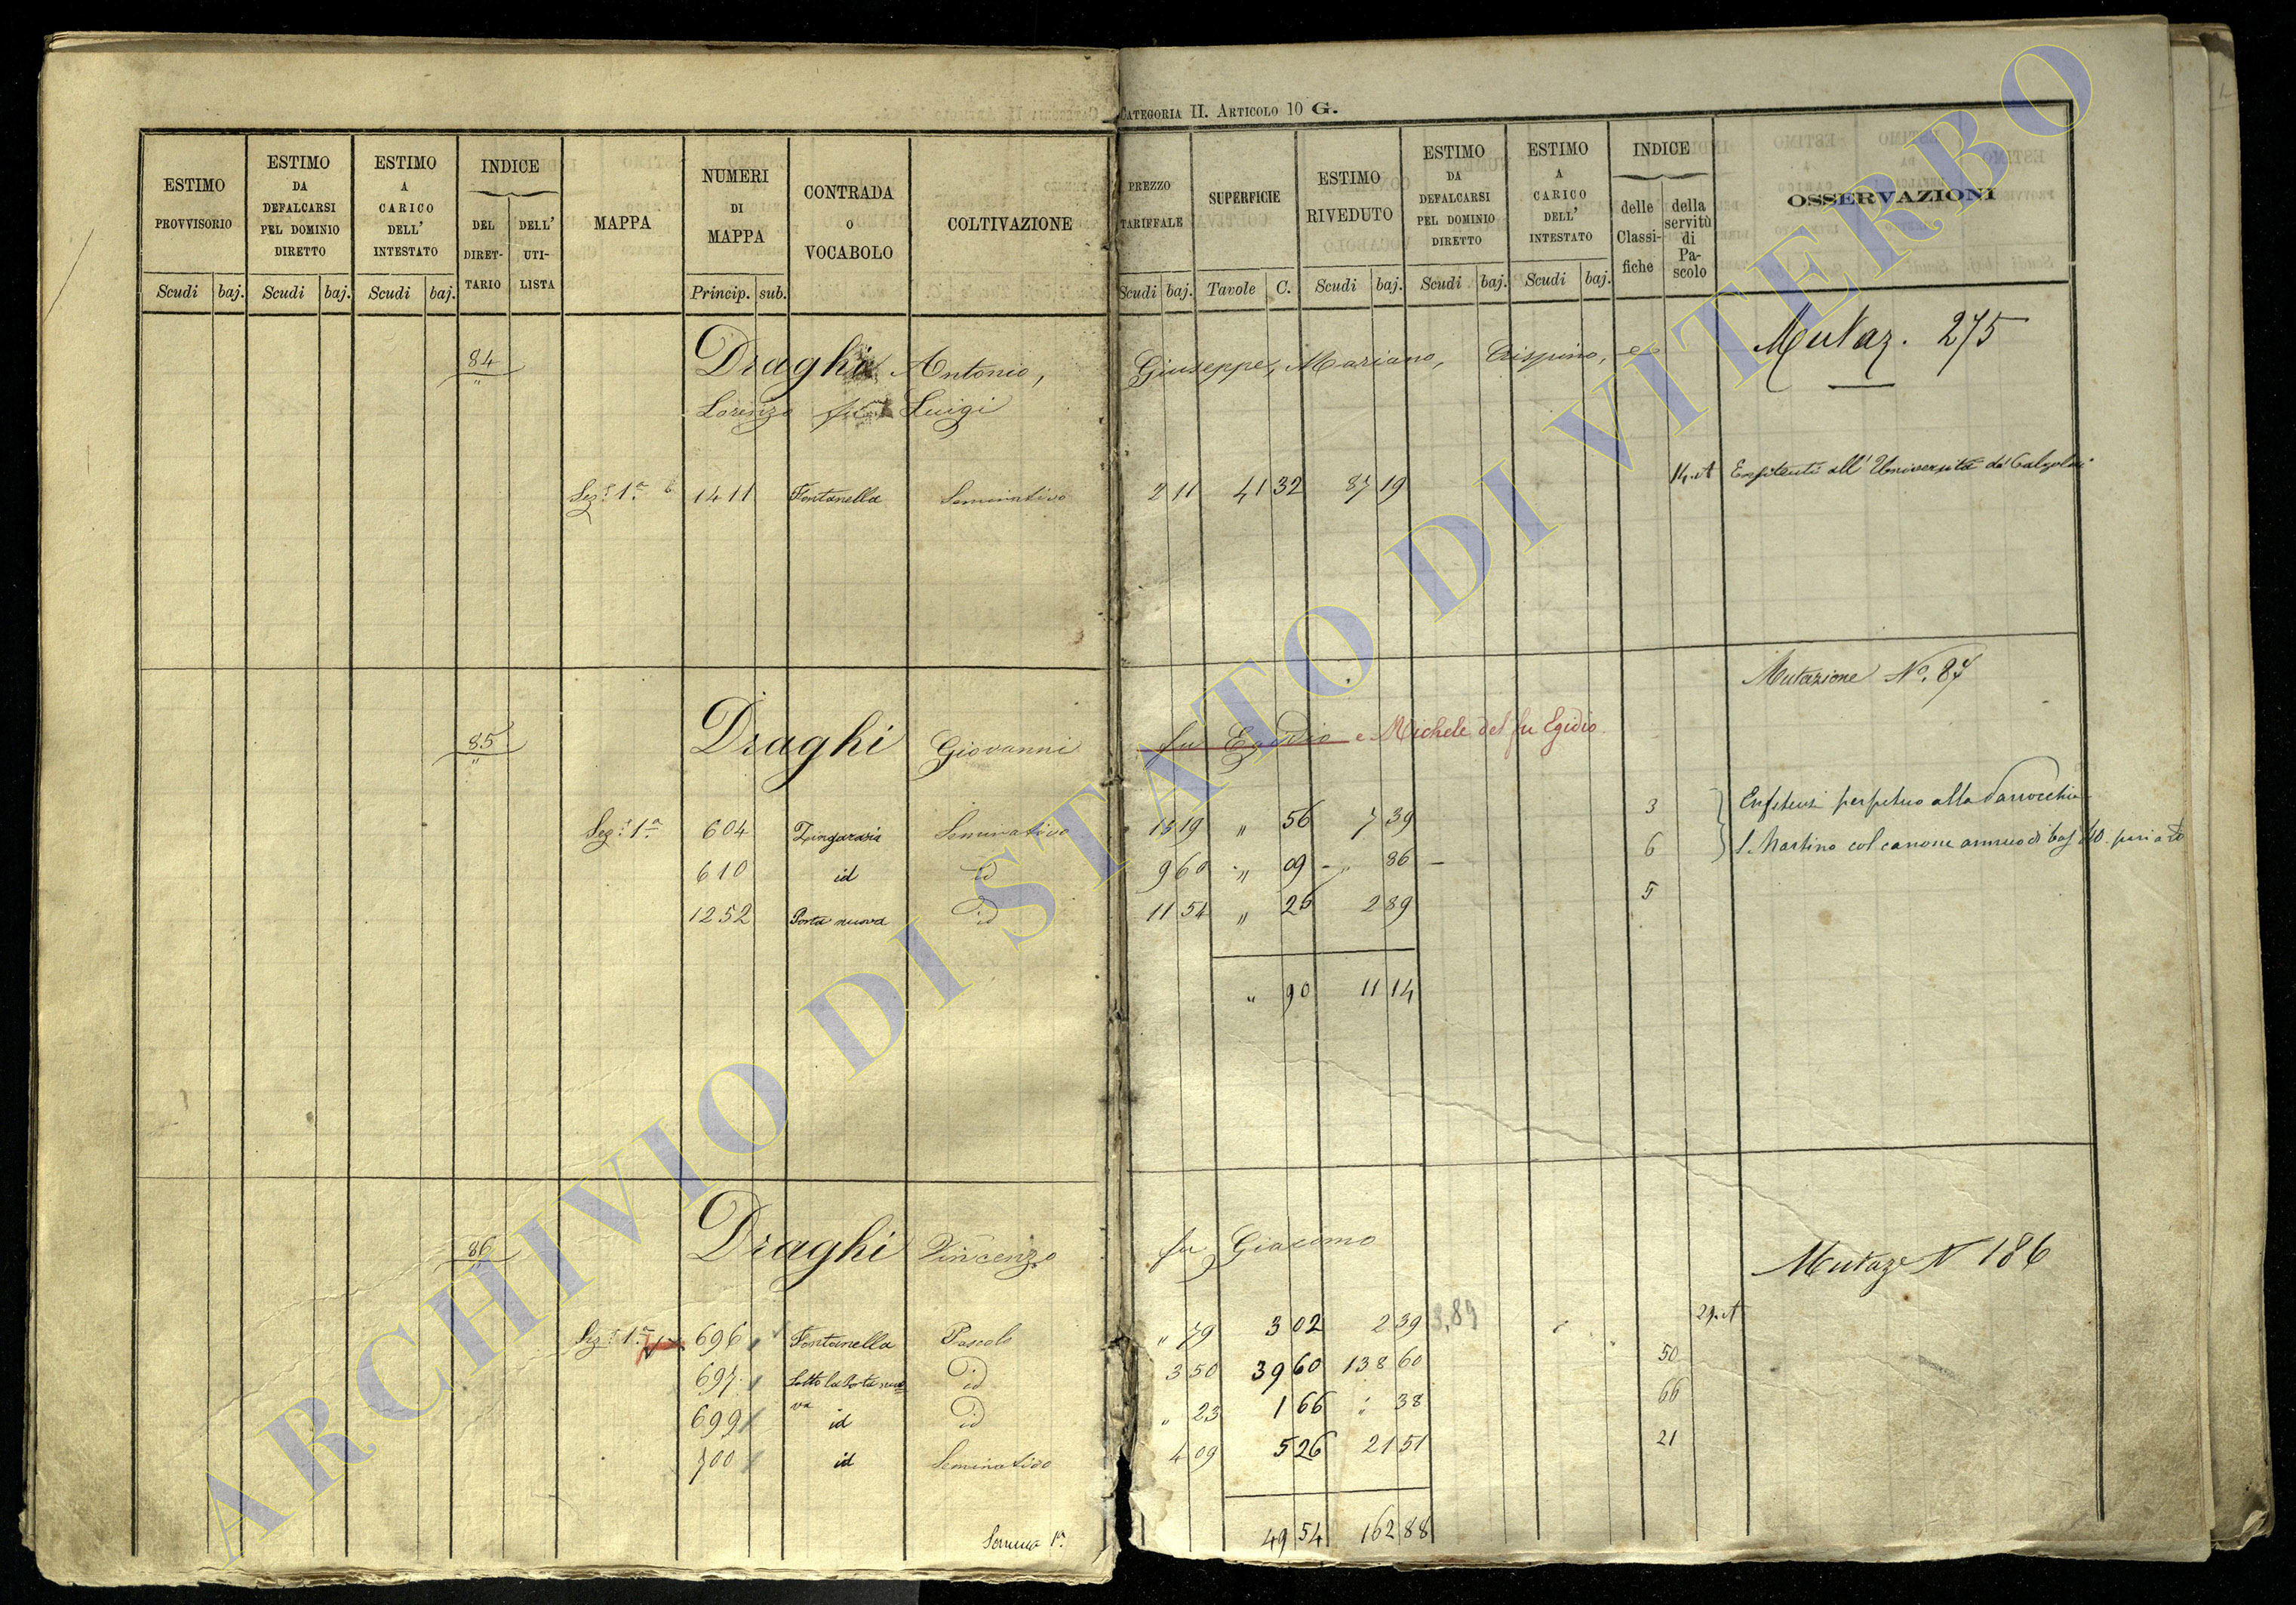 CATEGORIA II. ARTICOLO 10 G.
ESTIMO PROVVISORIO Scudi baj.
ESTIMO DA DEFALCARSI PEL DOMINIO DIRETTO Scudi baj.
ESTIMO A CARICO DELL' INTESTATO Scudi baj.
INDICE DEL DIRET- TARIO DELL' UTI- LISTA
MAPPA
NUMERI DI MAPPA Princip. sub.
CONTRADA O VOCABOLO
COLTIVAZIONE
PREZZO TARIFFALE Scudi baj.
SUPERFICIE Tavole C.
ESTIMO RIVEDUTO Scudi baj.
ESTIMO DA DEFALCARSI PEL DOMINIO DIRETTO Scudi baj.
ESTIMO A CARICO DELL' INTESTATO Scudi baj.
INDICE delle Classi- fiche della servitù di Pa- scolo
OSSERVAZIONI
84 " Draghi Antonio, Giuseppe, Mariano, Crispino, e Mutaz. 275
Lorenzo fu Luigi
Sez.e 1a 1411 Fontanella Seminativo 2 11 41 32 87 19 14.A Enfiteuti all' Università de' Calzolai
Mutazione No. 87
85 " Draghi Giovanni fu Egidio e Michele del fu Egidio
Sez.e 1a 604 Zingararia Seminativo 13 19 " 56 7 39 3 Enfiteusi perpetua alla Parrocchia
610 id id 9 60 " 09 " 86 6 S. Martino col canone annuo di baj 40
1252 Porta nuova id 11 54 " 25 2 89 5
" 90 11 14
86 " Draghi Vincenzo fu Giacomo Mutaze N 186
Sez.e 1a 696 Fontanella Pascolo " 79 3 02 2 39 3,89 29.A
697 Sotto la Porta nuo- va id 3 50 39 60 138 60 50
699 id id " 23 1 66 " 38 66
700 id Seminativo 4 09 5 26 21 51 21
Somma 1a 49 54 162 88
ARCHIVIO DI STATO DI VITERBO